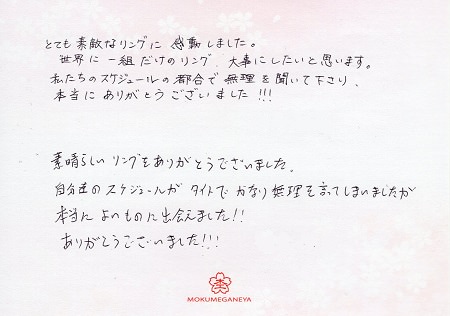 とても素敵なリングに感動しました。
世界に一組だけのリング、大事にしたいと思います。
私たちのスケジュールの都合で無理を聞いて下さり、
本当にありがとうございました!!!
素晴らしいリングをありがとうございました。
自分達のスケジュールがタイトでかなり無理を言ってしまいましたが
本当によいものに出会えました!!
ありがとうございました!!!
MOKUMEGANEYA